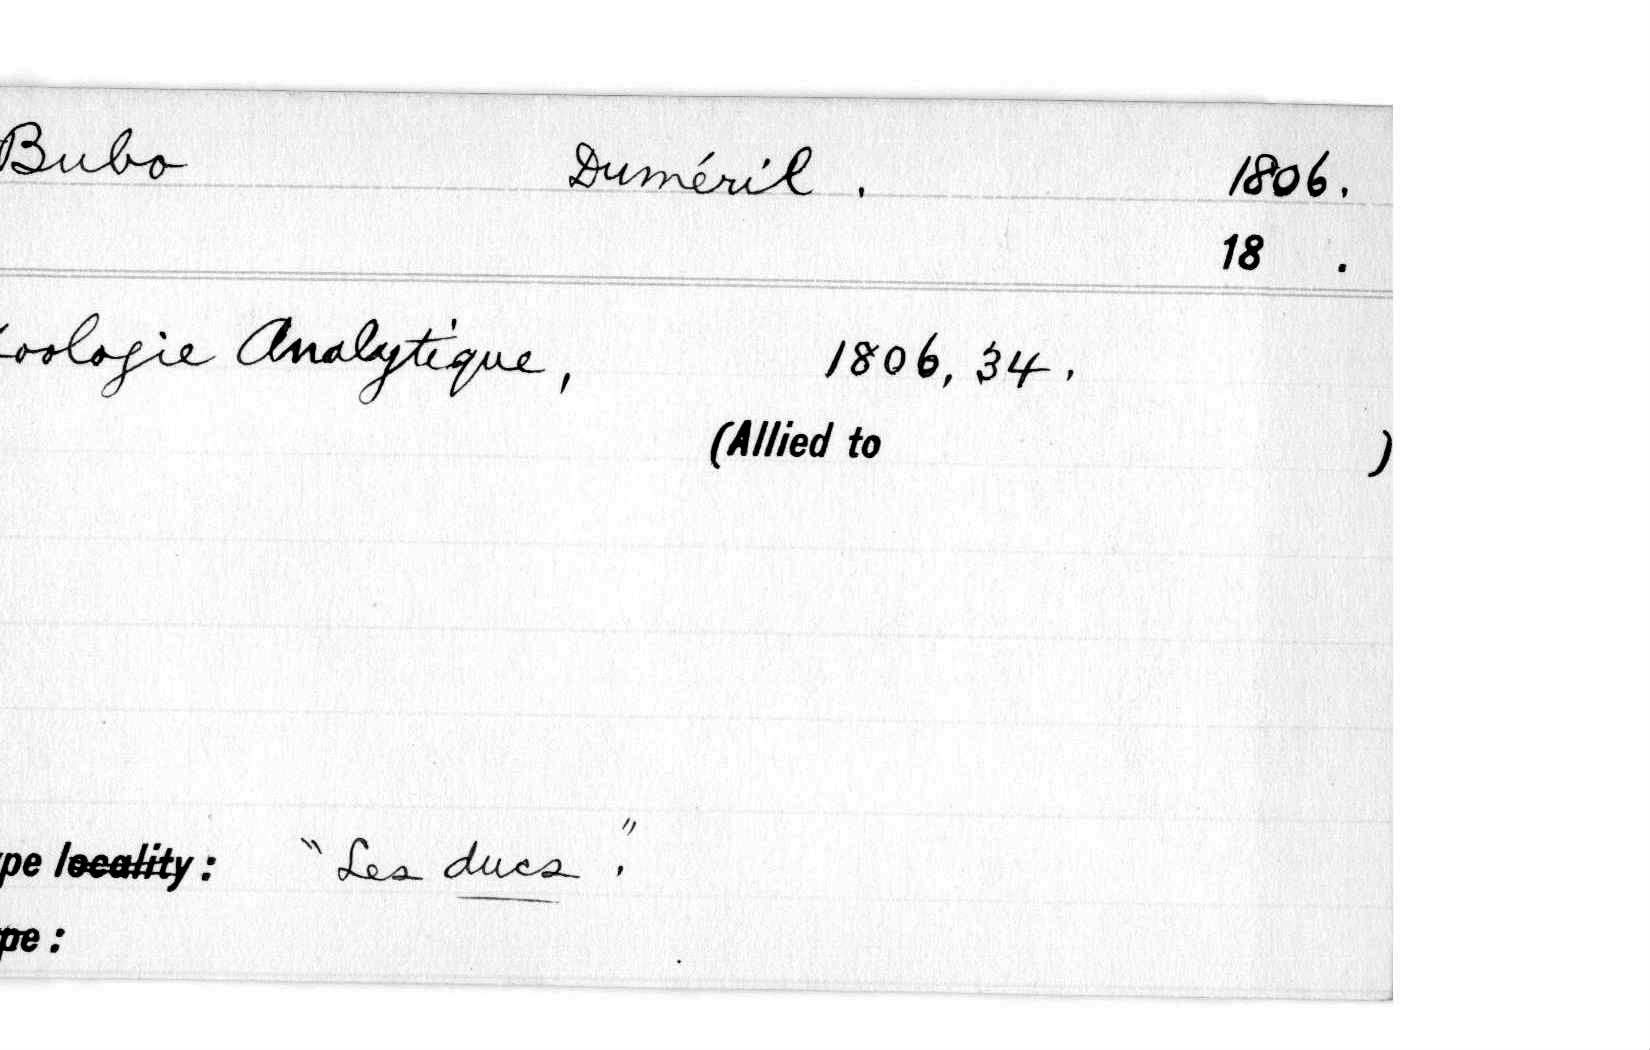 Bubo Duméril . 1806.
18 .
Zoologie Analytique, 1806, 34.
(Allied to )
ype locality : "Les ducs."
pe :